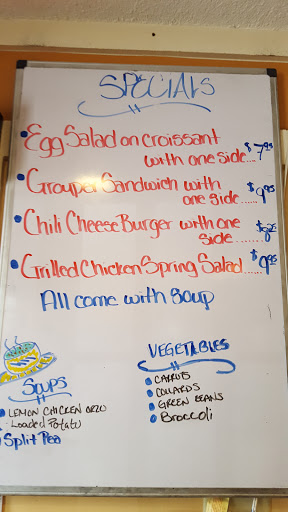 SPECIALS
• Egg Salad on Croissant
with one side.... $7.95
• Grouper Sandwich with
one side..... $9.95
• Chili Cheese Burger with one
side........ $8.25
• Grilled Chicken Spring Salad..... $9.95
All come with Soup
SOUPS
• LEMON CHICKEN ORZO
• Loaded Potato
• Split Pea
VEGETABLES
• CARROTS
• COLLARDS
• GREEN BEANS
• Broccoli